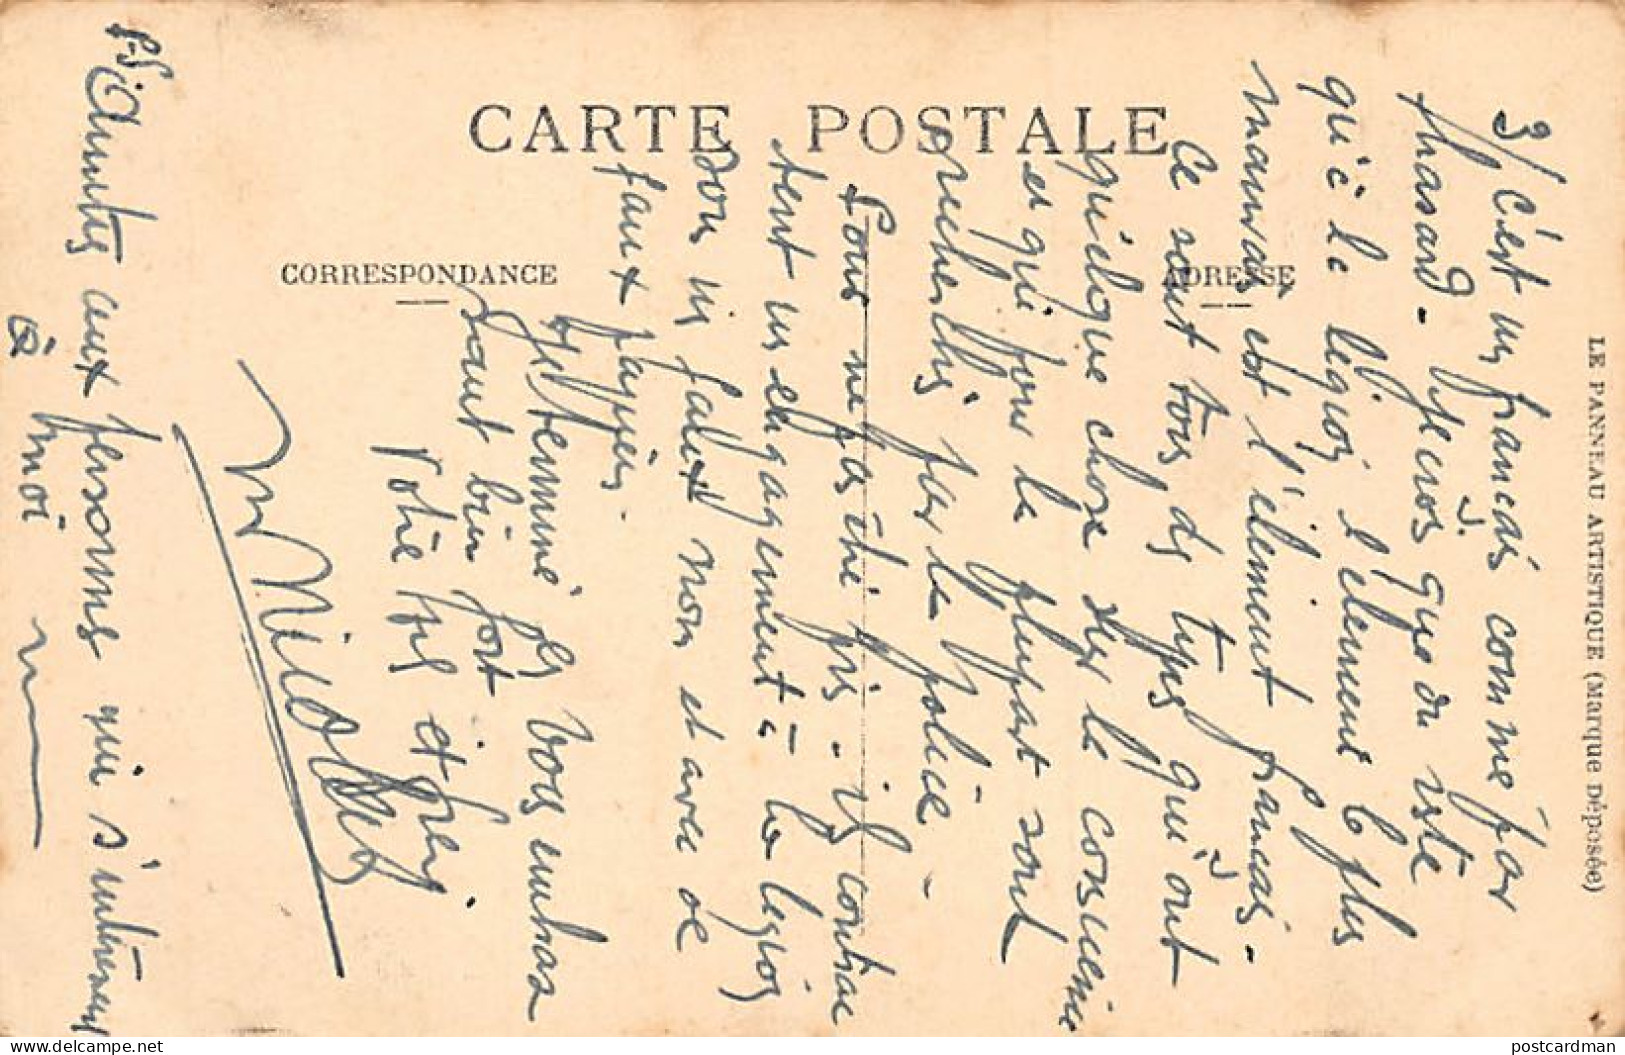 CARTE POSTALE
CORRESPONDANCE
ADRESSE
LE PANNEAU ARTISTIQUE (Marque Déposée)
3/ C'est un français comme par
hasard - que du reste
qu'à la légion l'élément le plus
mauvais est l'élément français -
Ce sont tous des types qu'ont
quelque chose sur la conscience
et qui pour la plupart sont
recherchés par la police -
Pour ne pas être pris - ils contrac
tent un engagement à la légion
sous un faux nom et avec de
faux papiers.
Je termine en vous embras
sant bien fort
Votre fils
P.S. Amitiés aux personnes qui s'intéressent
à moi
postcardman